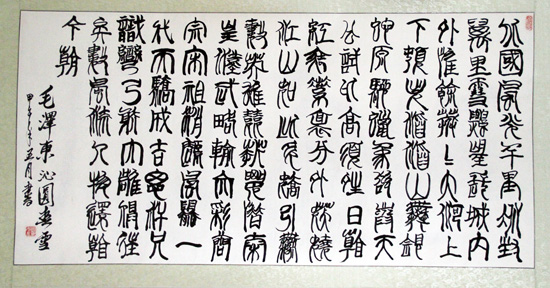 北國風光千里冰封
萬里雪飄望長城內
外惟餘莽莽大河上
下頓失滔滔山舞銀
蛇原馳蠟象欲與天
公試比高須晴日看
紅裝素裹分外妖嬈
江山如此多嬌引無
數英雄競折腰惜秦
皇漢武略輸文彩唐
宗宋祖稍遜風騷一
代天驕成吉思汗只
識彎弓射大雕俱往
矣數風流人物還看
今朝
毛澤東沁園春雪
五月書